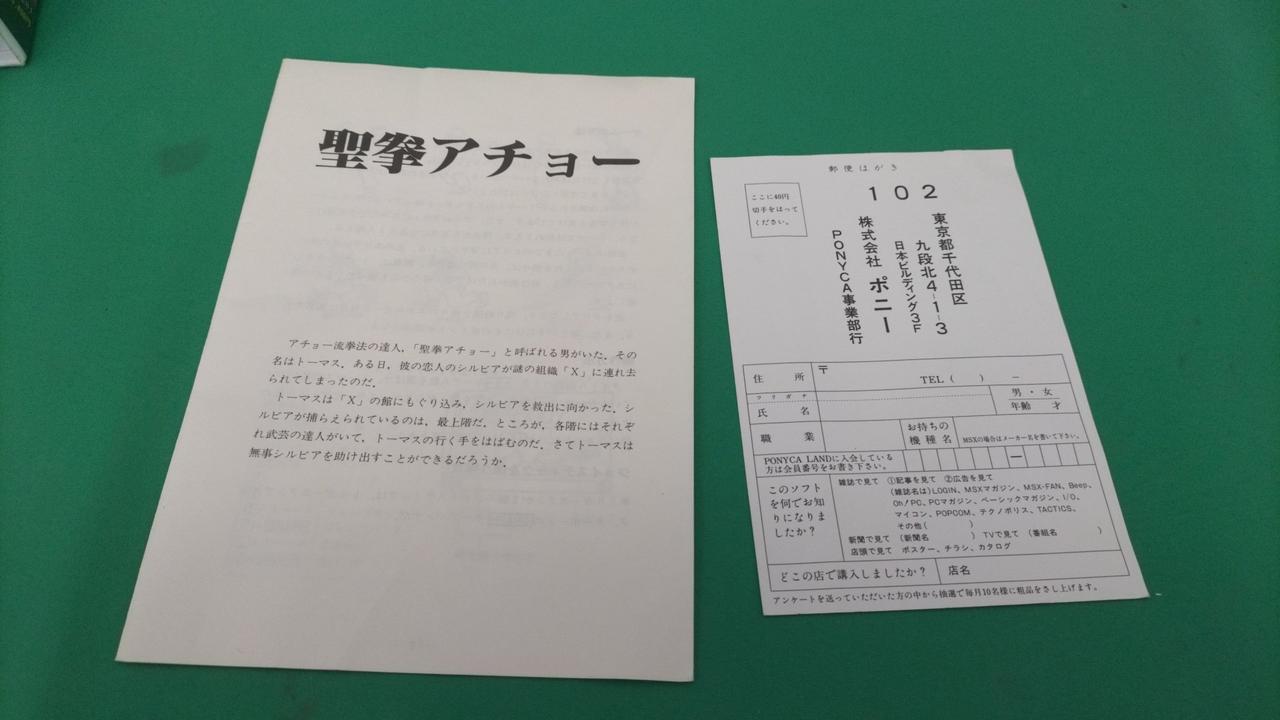 聖拳アチョー
アチョー流拳法の達人，「聖拳アチョー」と呼ばれる男がいた．その
名はトーマス．ある日，彼の恋人のシルビアが謎の組織「X」に連れ去
られてしまったのだ．
トーマスは「X」の館にもぐり込み，シルビアを救出に向かった．シ
ルビアが捕らえられているのは，最上階だ．ところが，各階にはそれぞ
れ武芸の達人がいて，トーマスの行く手をはばむのだ．さてトーマスは
無事シルビアを助け出すことができるだろうか．
郵便はがき
ここに40円
切手をはって
ください。
102
東京都千代田区
九段北4-1-3
日本ビルディング3F
株式会社 ポニー
PONYCA事業部行
住所
〒
TEL ( ) －
フリガナ
氏名
男・女
年齢 才
職業
お持ちの
機種名
MSXの場合はメーカー名を書いて下さい。
PONYCA LANDに入会している
方は会員番号をお書き下さい。
ー
このソフト
を何でお知
りになりま
したか？
雑誌で見て ①記事を見て ②広告を見て
(雑誌名は)LOGIN、MSXマガジン、MSX-FAN、Beep、
Oh！PC、PCマガジン、ベーシックマガジン、I/O、
マイコン、POPCOM、テクノポリス、TACTICS、
その他( )
新聞で見て (新聞名 ) TVで見て (番組名 )
店頭で見て ポスター、チラシ、カタログ
どこの店で購入しましたか？
店名
アンケートを送っていただいた方の中から抽選で毎月10名様に粗品をさし上げます。